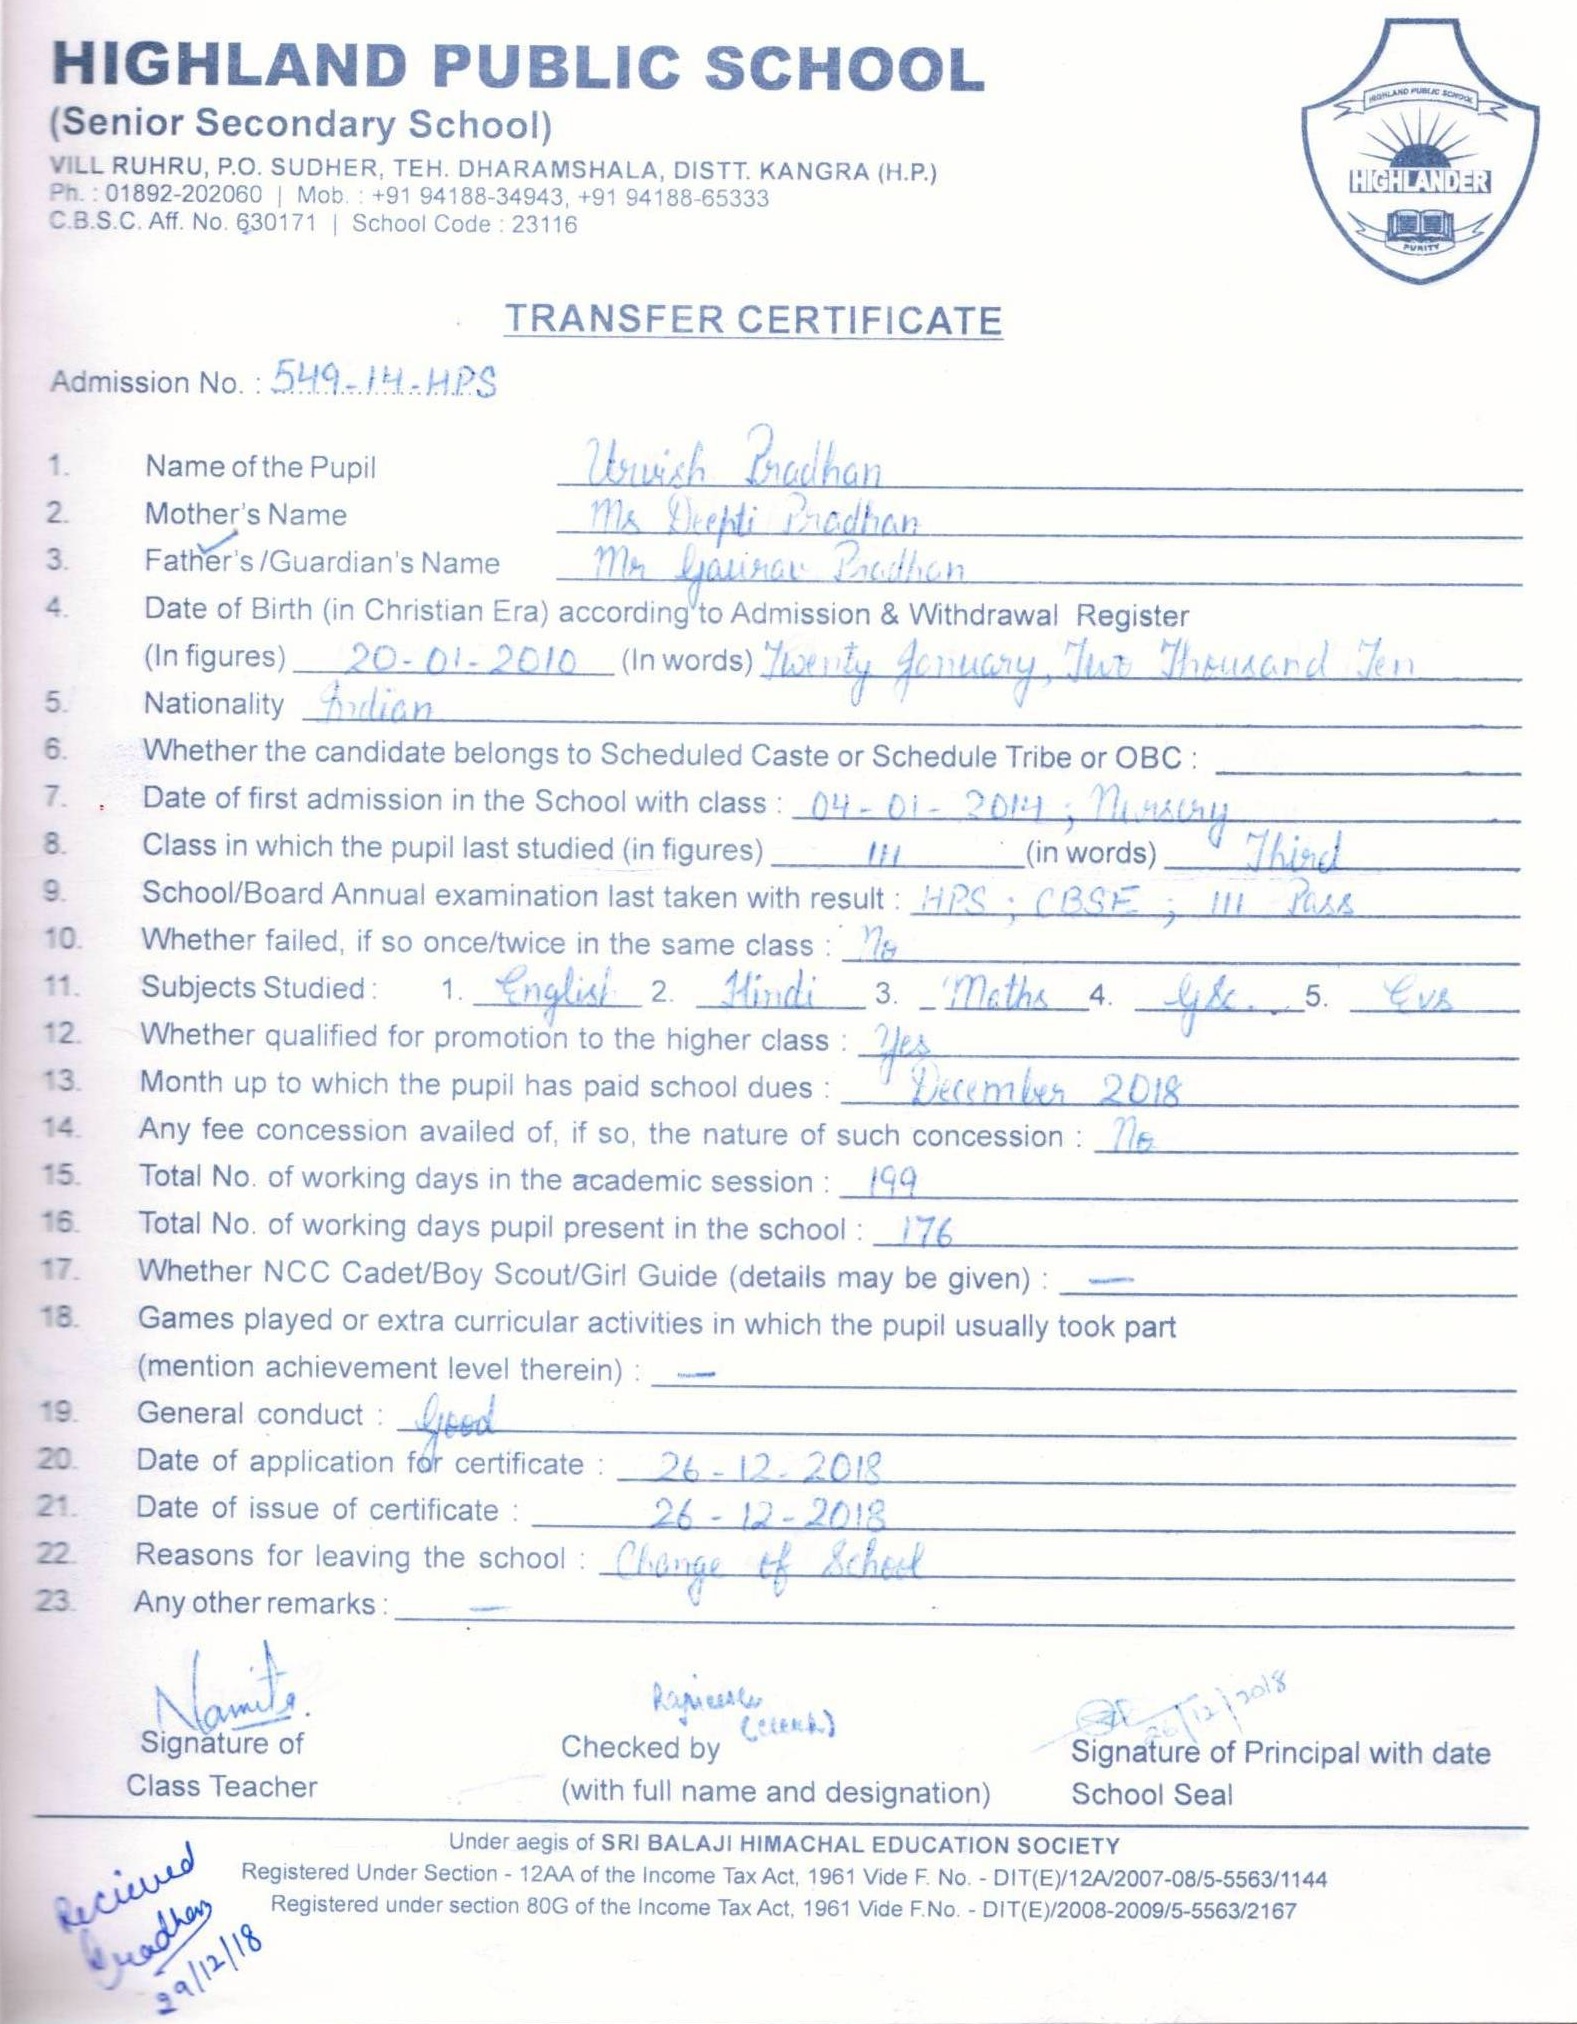 HIGHLAND PUBLIC SCHOOL
(Senior Secondary School)
VILL RUHRU, P.O. SUDHER, TEH. DHARAMSHALA, DISTT. KANGRA (H.P.)
Ph. : 01892-202060 | Mob. : +91 94188-34943, +91 94188-65333
C.B.S.C. Aff. No. 630171 | School Code : 23116
HIGHLAND PUBLIC SCHOOL
HIGHLANDER
PURITY
TRANSFER CERTIFICATE
Admission No. : 549-14-HPS
1. Name of the Pupil Urvish Pradhan
2. Mother's Name Ms Deepti Pradhan
3. Father's /Guardian's Name Mr Gaurav Pradhan
4. Date of Birth (in Christian Era) according to Admission & Withdrawal Register
(In figures) 20-01-2010 (In words) Twenty January, Two Thousand Ten
5. Nationality Indian
6. Whether the candidate belongs to Scheduled Caste or Schedule Tribe or OBC :
7. Date of first admission in the School with class : 04-01-2014 ; Nursery
8. Class in which the pupil last studied (in figures) III (in words) Third
9. School/Board Annual examination last taken with result : HPS ; CBSE ; III Pass
10. Whether failed, if so once/twice in the same class : No
11. Subjects Studied : 1. English 2. Hindi 3. Maths 4. G.Sc. 5. Evs
12. Whether qualified for promotion to the higher class : Yes
13. Month up to which the pupil has paid school dues : December 2018
14. Any fee concession availed of, if so, the nature of such concession : No
15. Total No. of working days in the academic session : 199
16. Total No. of working days pupil present in the school : 176
17. Whether NCC Cadet/Boy Scout/Girl Guide (details may be given) : —
18. Games played or extra curricular activities in which the pupil usually took part
(mention achievement level therein) : —
19. General conduct : Good
20. Date of application for certificate : 26-12-2018
21. Date of issue of certificate : 26-12-2018
22. Reasons for leaving the school : Change of School
23. Any other remarks : —
Namita
(Clerk)
26/12/2018
Signature of Checked by Signature of Principal with date
Class Teacher (with full name and designation) School Seal
Under aegis of SRI BALAJI HIMACHAL EDUCATION SOCIETY
Registered Under Section - 12AA of the Income Tax Act, 1961 Vide F. No. - DIT(E)/12A/2007-08/5-5563/1144
Registered under section 80G of the Income Tax Act, 1961 Vide F.No. - DIT(E)/2008-2009/5-5563/2167
Recieved
Pradhan
29/12/18